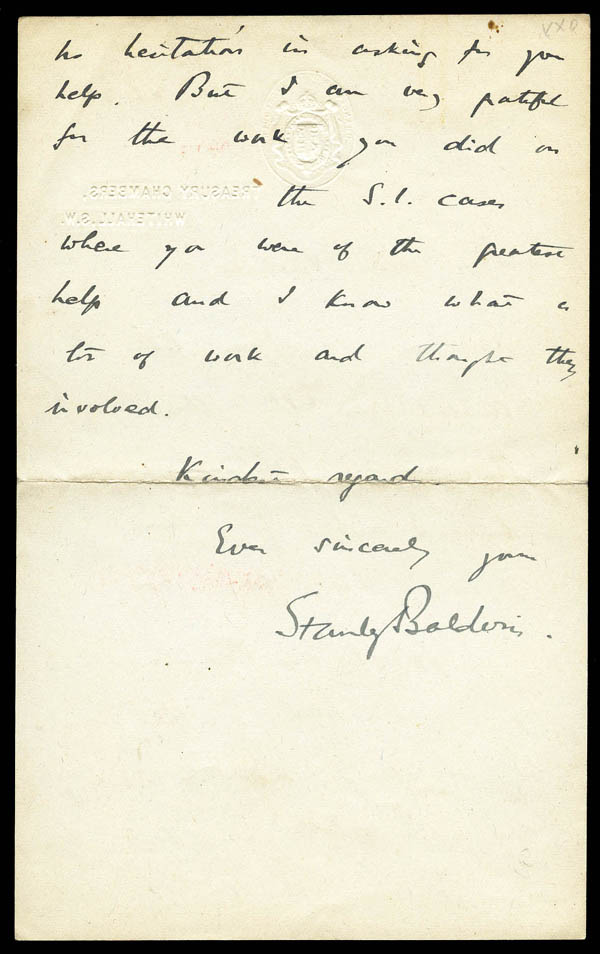 no hesitation in asking for your
help. But I am very grateful
for the work you did on
the S.I. cases
TREASURY CHAMBERS.
WHITEHALL. S.W.
where you were of the greatest
help and I know what a
lot of work and thought they
involved.
Kindest regards.
Ever sincerely yours
Stanley Baldwin.